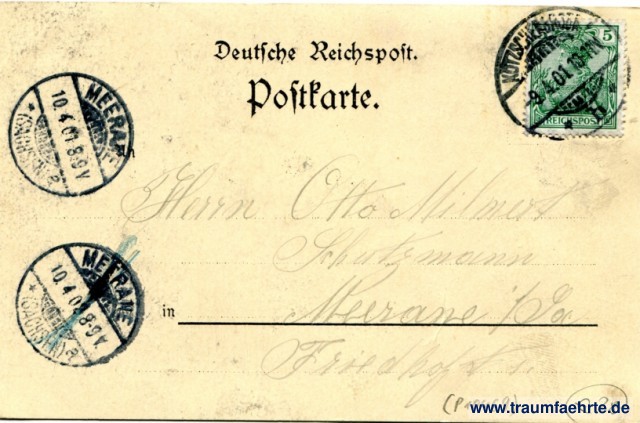 Deutsche Reichspost.
Postkarte.
5
REICHSPOST
9.4.01
MEERANE
10.4.01.8-9V.
(SACHSEN) a
Herrn Otto
Schutzmann
in Meerane i/Sa
Friedhofstr.
MEERANE
10.4.01.8-9V.
(SACHSEN) a
www.traumfaehrte.de